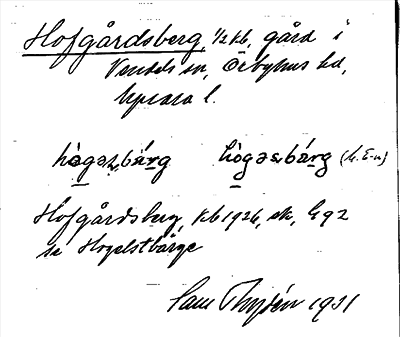 Hofgårdsberg, 1/2 kb, gård i
Vendels sn, Örbyhus hd,
Uppsala l.
hògəsbárg hògəsbárg (h. E-n)
Hofgårdsberg, kb 1926, ek, G 92
se Hogelstbärge
Sam Thysén 1931